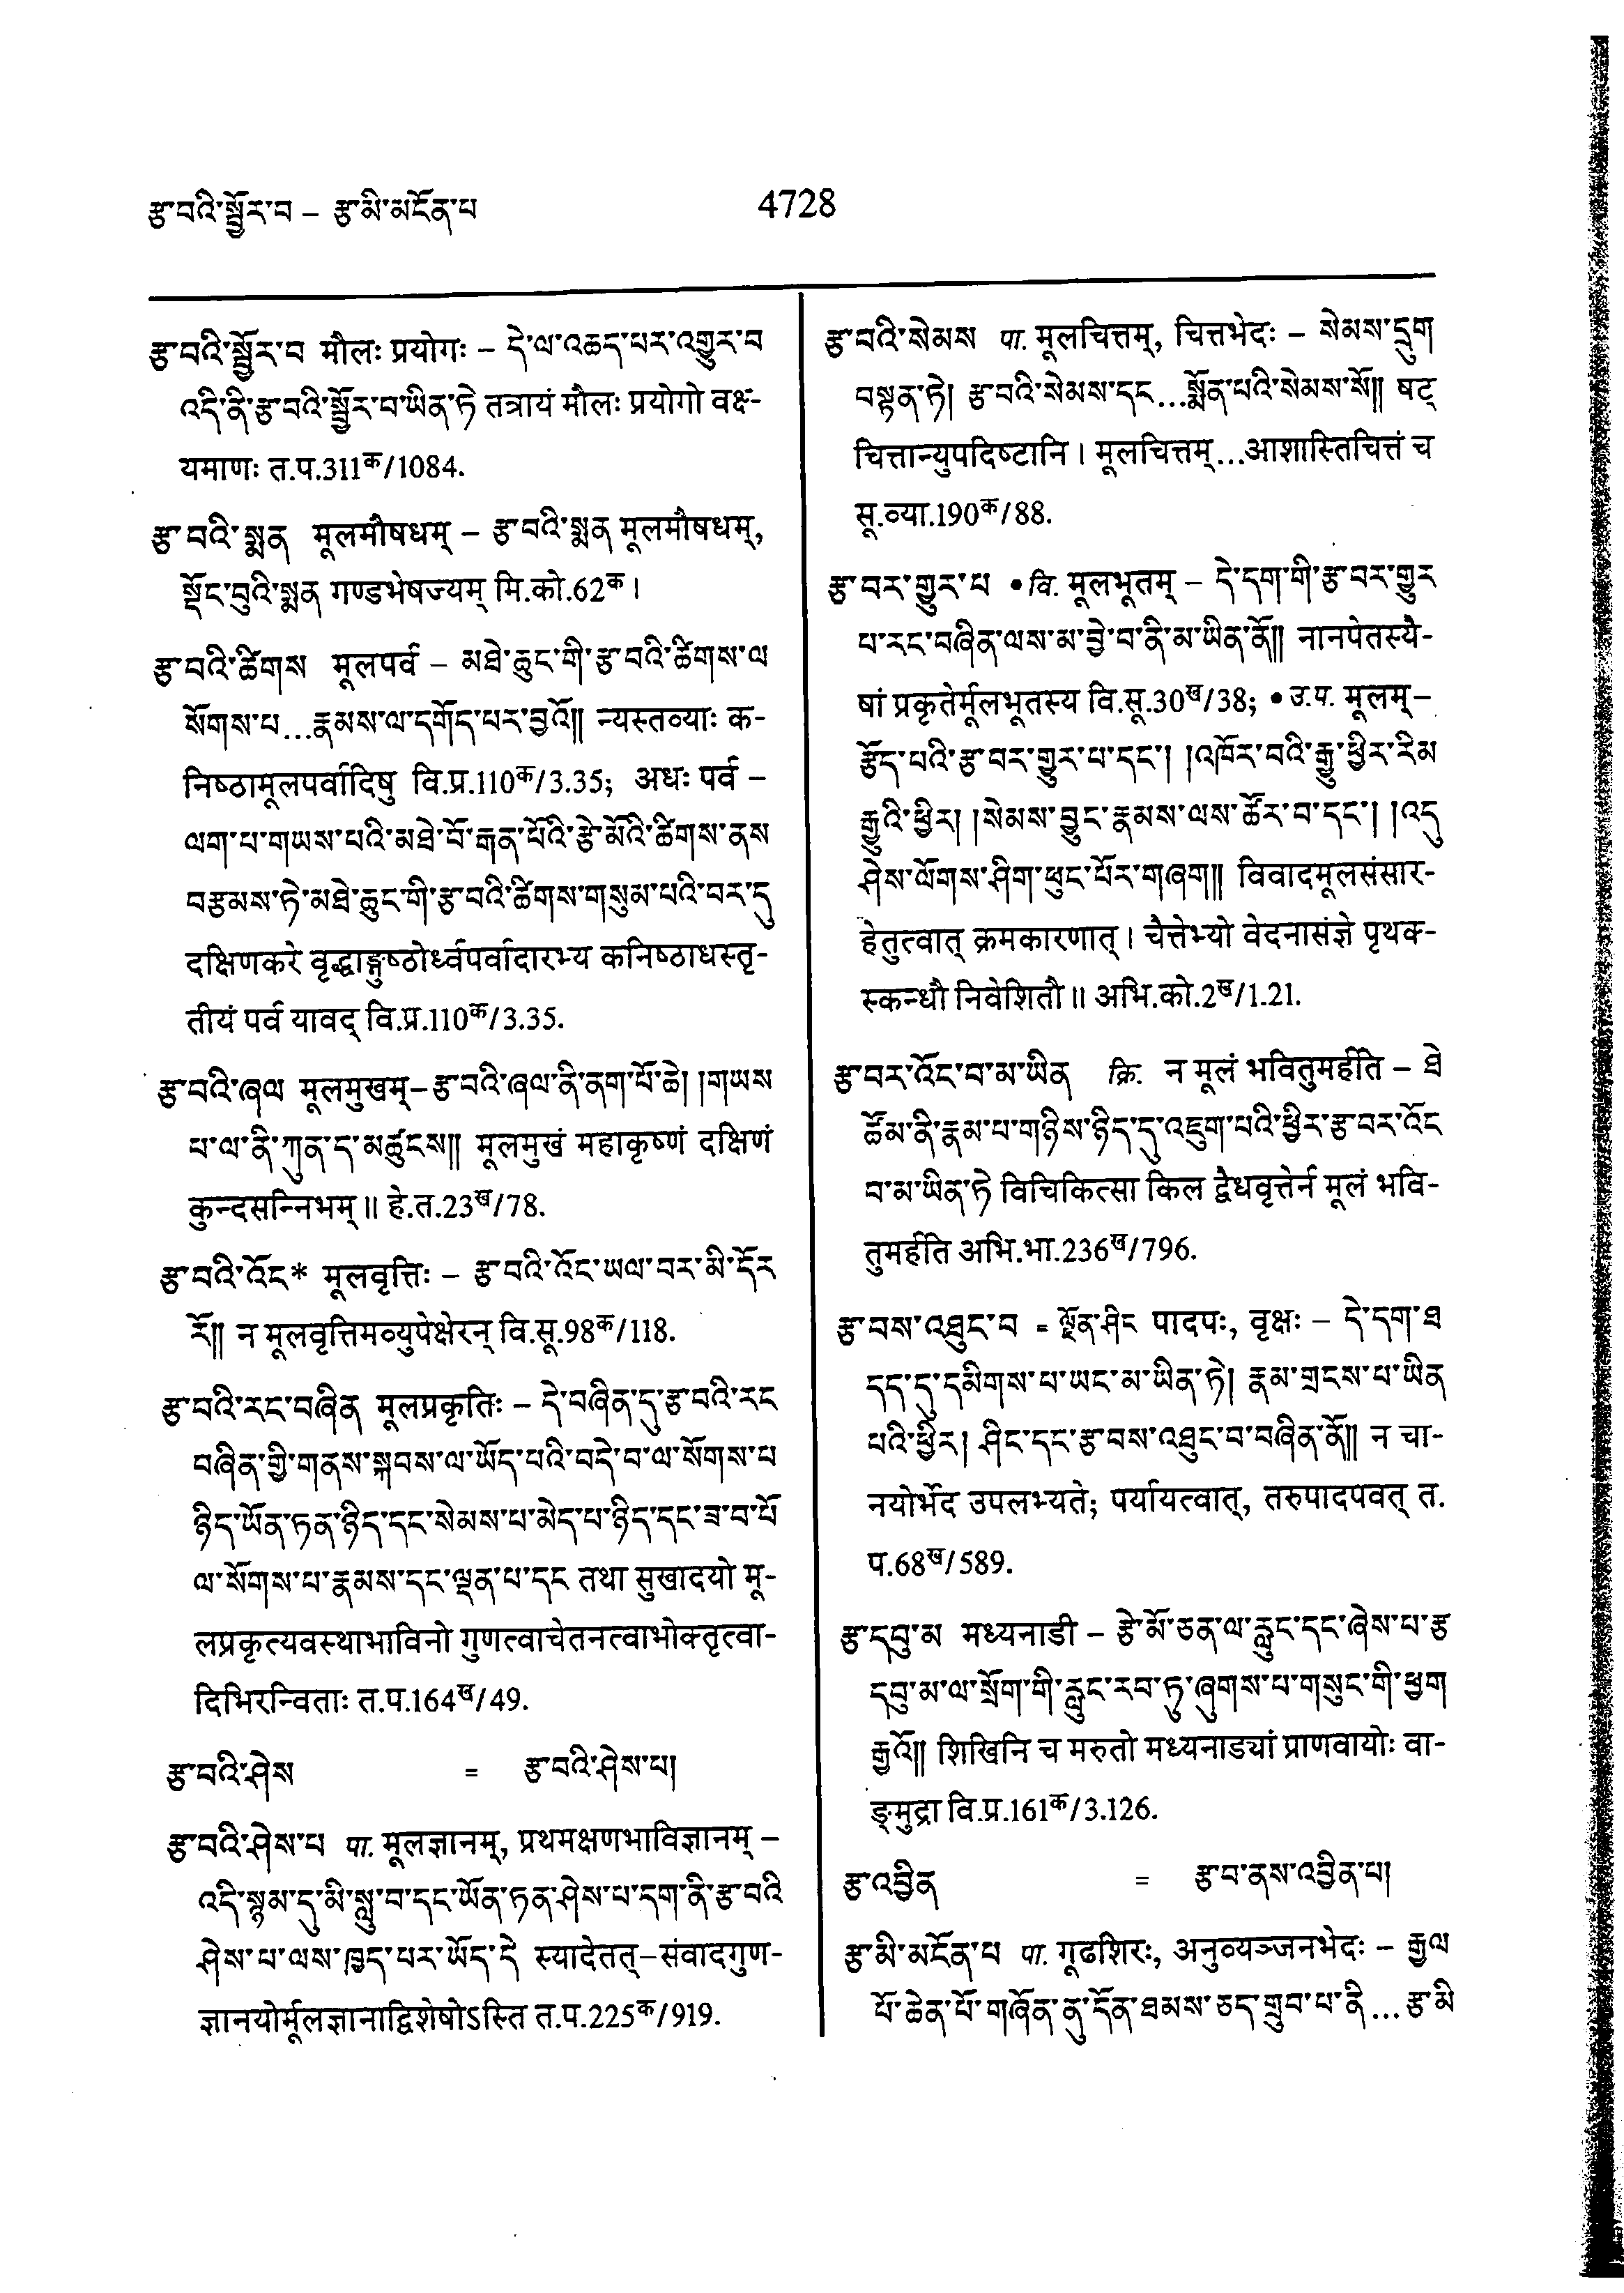 རྩ་བའི་སྦྱོར་བ – རྩ་མི་མངོན་པ
4728
རྩ་བའི་སྦྱོར་བ मौलः प्रयोगः – དེ་ལ་འཆད་པར་འགྱུར་བ
འདི་ནི་རྩ་བའི་སྦྱོར་བ་ཡིན་ཏེ तत्रायं मौलः प्रयोगो वक्ष्-
यमाणः त.प.311क/1084.
རྩ་བའི་སྨན मूलमौषधम् – རྩ་བའི་སྨན मूलमौषधम्,
སྡོང་བུའི་སྨན गण्डभेषज्यम् मि.को.62क।
རྩ་བའི་ཚིགས मूलपर्व – མཐེ་ཆུང་གི་རྩ་བའི་ཚིགས་ལ
སོགས་པ...རྣམས་ལ་དགོད་པར་བྱའོ།། न्यस्तव्याः क-
निष्ठामूलपर्वादिषु वि.प्र.110क/3.35; अधः पर्व –
ལག་པ་གཡས་པའི་མཐེ་བོ་རྒན་པོའི་རྩེ་མོའི་ཚིགས་ནས
བརྩམས་ཏེ་མཐེ་ཆུང་གི་རྩ་བའི་ཚིགས་གསུམ་པའི་བར་དུ
दक्षिणकरे वृद्धाङ्गुष्ठोर्ध्वपर्वादारभ्य कनिष्ठाधस्तृ-
तीयं पर्व यावद् वि.प्र.110क/3.35.
རྩ་བའི་ཞལ मूलमुखम्–རྩ་བའི་ཞལ་ནི་ནག་པོ་ཆེ། །གཡས
པ་ལ་ནི་ཀུན་ད་མཚུངས།། मूलमुखं महाकृष्णं दक्षिणं
कुन्दसन्निभम्॥ हे.त.23ख/78.
རྩ་བའི་འོང* मूलवृत्तिः – རྩ་བའི་འོང་ཡལ་བར་མི་དོར
རོ།། न मूलवृत्तिमव्युपेक्षेरन् वि.सू.98क/118.
རྩ་བའི་རང་བཞིན मूलप्रकृतिः – དེ་བཞིན་དུ་རྩ་བའི་རང
བཞིན་གྱི་གནས་སྐབས་ལ་ཡོད་པའི་བདེ་བ་ལ་སོགས་པ
ཉིད་ཡོན་ཏན་ཉིད་དང་སེམས་པ་མེད་པ་ཉིད་དང་ཟ་བ་པོ
ལ་སོགས་པ་རྣམས་དང་ལྡན་པ་དང तथा सुखादयो मू-
लप्रकृत्यवस्थाभाविनो गुणत्वाचेतनत्वाभोक्तृत्वा-
दिभिरन्विताः त.प.164ख/49.
རྩ་བའི་ཤེས = རྩ་བའི་ཤེས་པ།
རྩ་བའི་ཤེས་པ पा. मूलज्ञानम्, प्रथमक्षणभाविज्ञानम् –
འདི་སྙམ་དུ་མི་སླུ་བ་དང་ཡོན་ཏན་ཤེས་པ་དག་ནི་རྩ་བའི
ཤེས་པ་ལས་ཁྱད་པར་ཡོད་དེ स्यादेतत्–संवादगुण-
ज्ञानयोर्मूलज्ञानाद्विशेषोऽस्ति त.प.225क/919.
རྩ་བའི་སེམས पा. मूलचित्तम्, चित्तभेदः – སེམས་དྲུག
བསྟན་ཏེ། རྩ་བའི་སེམས་དང...སྨོན་པའི་སེམས་སོ།། षट्
चित्तान्युपदिष्टानि। मूलचित्तम्...आशास्तिचित्तं च
सू.व्या.190क/88.
རྩ་བར་གྱུར་པ •वि. मूलभूतम् – དེ་དག་གི་རྩ་བར་གྱུར
པ་རང་བཞིན་ལས་མ་བྱེ་བ་ནི་མ་ཡིན་ནོ།། नानपेतस्यै-
षां प्रकृतेर्मूलभूतस्य वि.सू.30ख/38; •उ.प. मूलम्–
རྩོད་པའི་རྩ་བར་གྱུར་པ་དང་། །འཁོར་བའི་རྒྱུ་ཕྱིར་རིམ
རྒྱུའི་ཕྱིར། །སེམས་བྱུང་རྣམས་ལས་ཚོར་བ་དང་། །འདུ
ཤེས་ལོགས་ཤིག་ཕུང་པོར་གཞག།། विवादमूलसंसार-
हेतुत्वात् क्रमकारणात्। चैत्तेभ्यो वेदनासंज्ञे पृथक्-
स्कन्धौ निवेशितौ॥ अभि.को.2ख/1.21.
རྩ་བར་འོང་བ་མ་ཡིན क्रि. न मूलं भवितुमर्हति – ཐེ
ཚོམ་ནི་རྣམ་པ་གཉིས་ཉིད་དུ་འཇུག་པའི་ཕྱིར་རྩ་བར་འོང
བ་མ་ཡིན་ཏེ विचिकित्सा किल द्वैधवृत्तेर्न मूलं भवि-
तुमर्हति अभि.भा.236ख/796.
རྩ་བས་འཐུང་བ = ལྗོན་ཤིང पादपः, वृक्षः – དེ་དག་ཐ
དད་དུ་དམིགས་པ་ཡང་མ་ཡིན་ཏེ། རྣམ་གྲངས་པ་ཡིན
པའི་ཕྱིར། ཤིང་དང་རྩ་བས་འཐུང་བ་བཞིན་ནོ།། न चा-
नयोर्भेद उपलभ्यते; पर्यायत्वात्, तरुपादपवत् त.
प.68ख/589.
རྩ་དབུ་མ मध्यनाडी – རྩེ་མོ་ཅན་ལ་རླུང་དང་ཞེས་པ་རྩ
དབུ་མ་ལ་སྲོག་གི་རླུང་རབ་ཏུ་ཞུགས་པ་གསུང་གི་ཕྱག
རྒྱའོ།། शिखिनि च मरुतो मध्यनाड्यां प्राणवायोः वा-
ङ्मुद्रा वि.प्र.161क/3.126.
རྩ་འབྱིན = རྩ་བ་ནས་འབྱིན་པ།
རྩ་མི་མངོན་པ पा. गूढशिरः, अनुव्यञ्जनभेदः – རྒྱལ
པོ་ཆེན་པོ་གཞོན་ནུ་དོན་ཐམས་ཅད་གྲུབ་པ་ནི...རྩ་མི